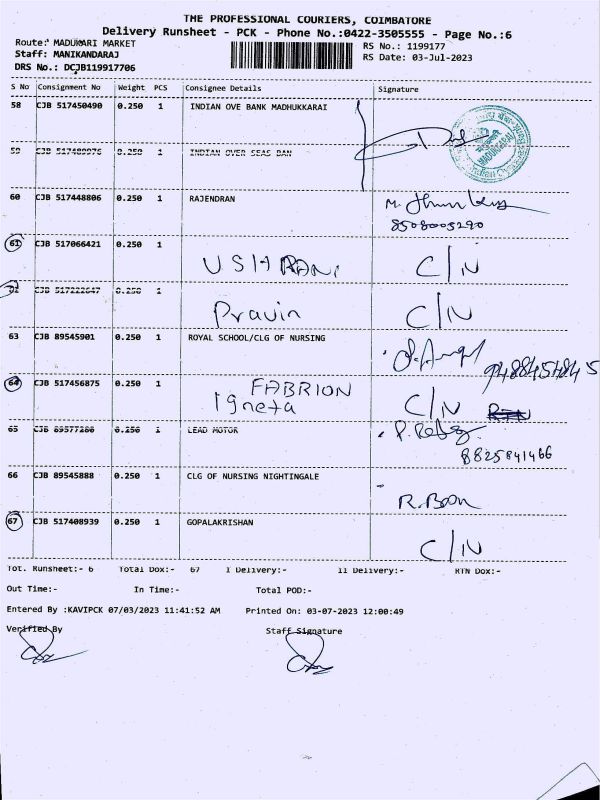 THE PROFESSIONAL COURIERS, COIMBATORE
Delivery Runsheet - PCK - Phone No.:0422-3505555 - Page No.:6
Route: MADUKARI MARKET RS No.: 1199177
Staff: MANIKANDARAJ RS Date: 03-Jul-2023
DRS No.: DCJB119917706
S No Consignment No Weight PCS Consignee Details Signature
58 CJB 517450490 0.250 1 INDIAN OVE BANK MADHUKKARAI
59 CJB 517480976 0.250 1 INDIAN OVER SEAS BAN
60 CJB 517448806 0.250 1 RAJENDRAN
8508005290
61 CJB 517066421 0.250 1
USHA RANI C/N
62 CJB 517222647 0.250 1
Pravin C/N
63 CJB 89545901 0.250 1 ROYAL SCHOOL/CLG OF NURSING
9488457845
64 CJB 517456875 0.250 1 FABRION
Igneta C/N
65 CJB 89577286 0.250 1 LEAD MOTOR
8825841466
66 CJB 89545888 0.250 1 CLG OF NURSING NIGHTINGALE
R.Boon
67 CJB 517408939 0.250 1 GOPALAKRISHAN
C/N
Tot. Runsheet:- 6 Total Dox:- 67 I Delivery:- II Delivery:- RTN Dox:-
Out Time:- In Time:- Total POD:-
Entered By :KAVIPCK 07/03/2023 11:41:52 AM Printed On: 03-07-2023 12:00:49
Verified By Staff Signature